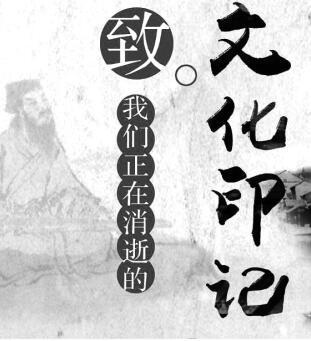 致
我们正在消逝的
文化印记